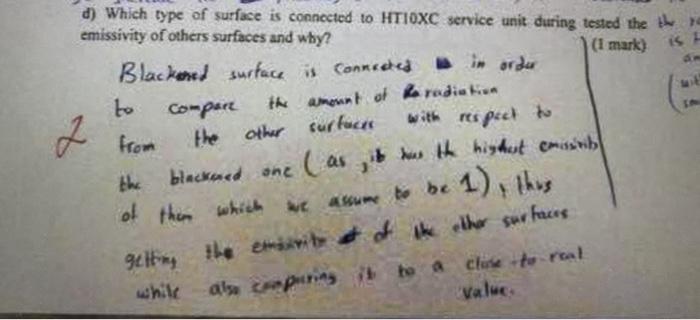 d) Which type of surface is connected to HT10XC service unit during tested the the
emissivity of others surfaces and why?
(1 mark) is
Blackened surface is connected in order
to compare the amount of radiation
2
from the other surfaces with respect to
the blackened one (as it has the highest emissivity
of them which we assume to be 1), thus
getting the emissivity of the other surfaces
while also comparing it to a close-to-real
value.